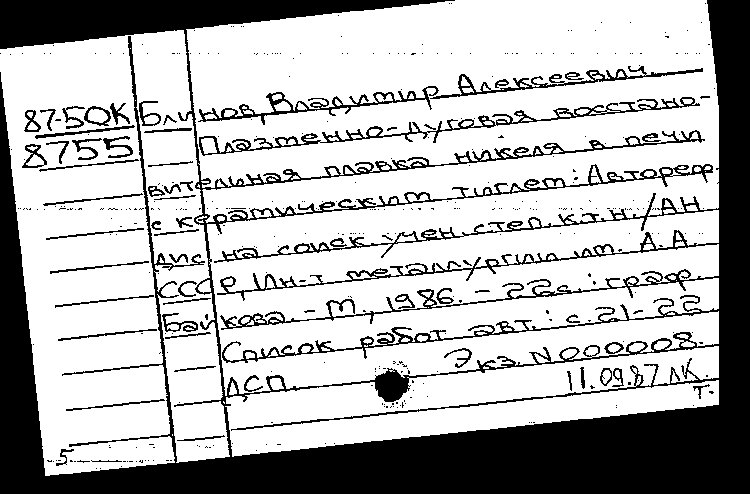 87-50К Блинов, Владимир Алексеевич.
8755 Плазменно-дуговая восстано-
вительная плавка никеля в печи
с керамическим тиглем: Автореф.
дис. на соиск. учен. степ. к.т.н. /АН
СССР, Ин-т металлургии им. А.А.
Байкова. - М., 1986. - 22с.: граф.
Список работ авт.: с.21-22
ДСП. Экз. N000008.
11.09.87 ЛК.
Т.
5